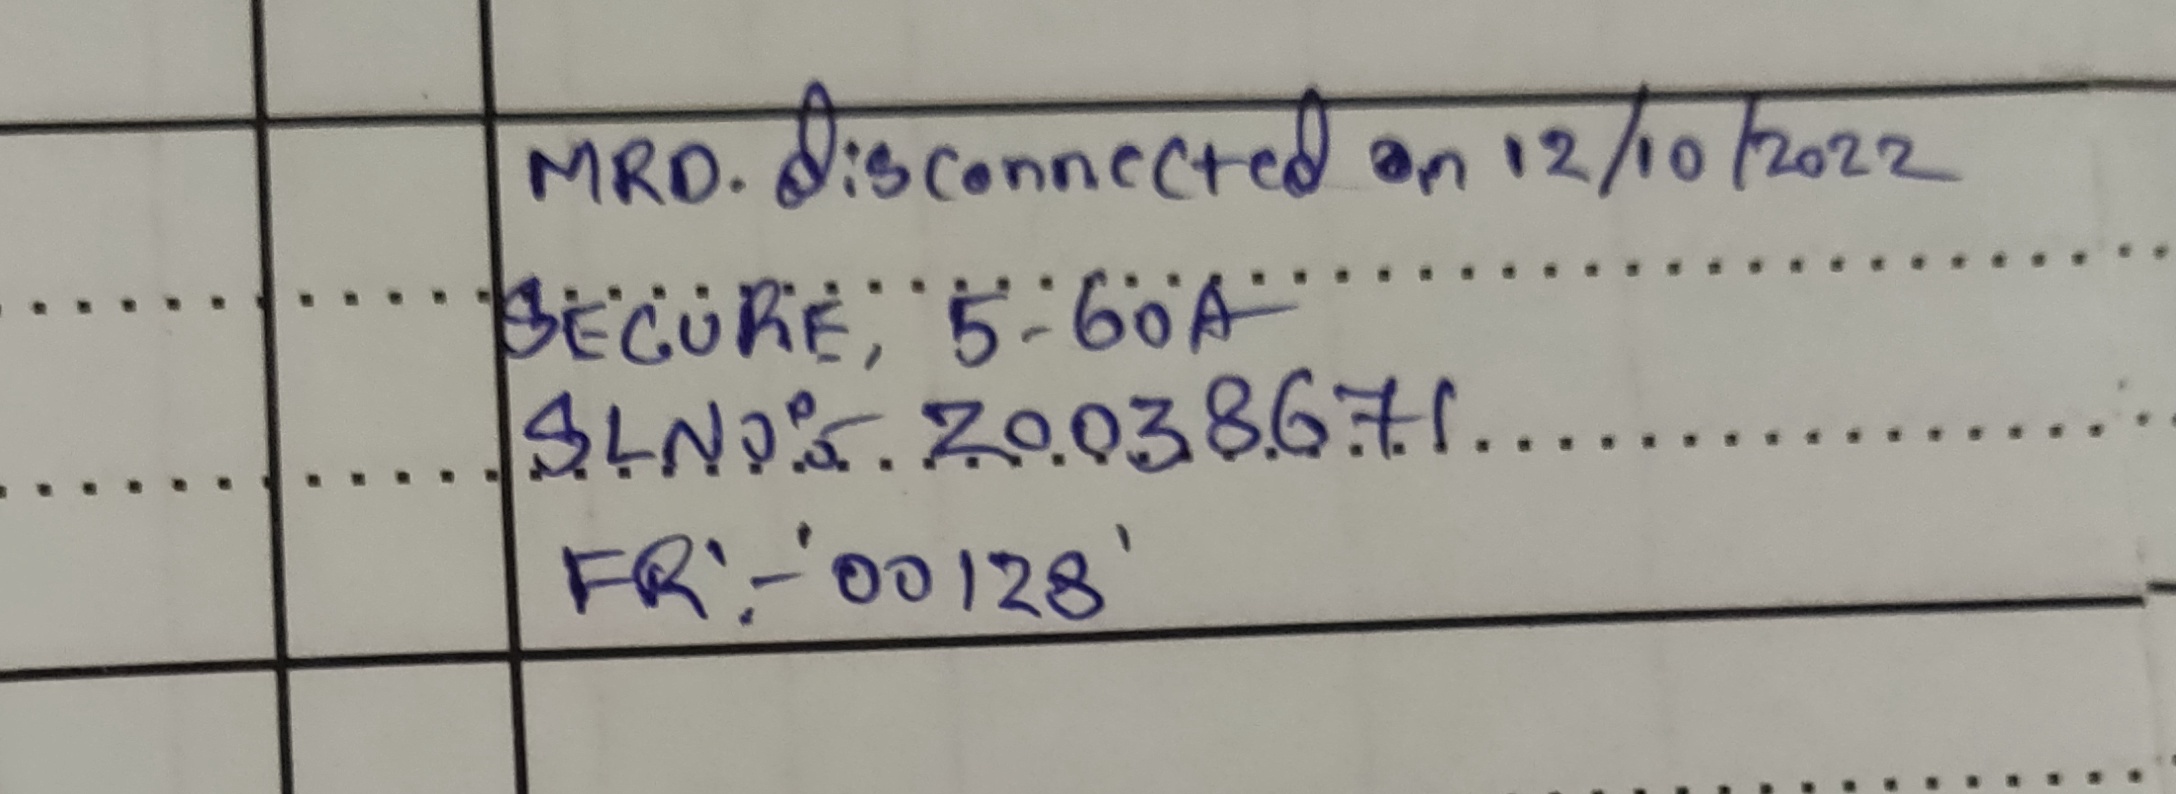 MRD. disconnected on 12/10/2022
SECURE, 5-60A
SLNO:- 20038671
FR:- '00128'